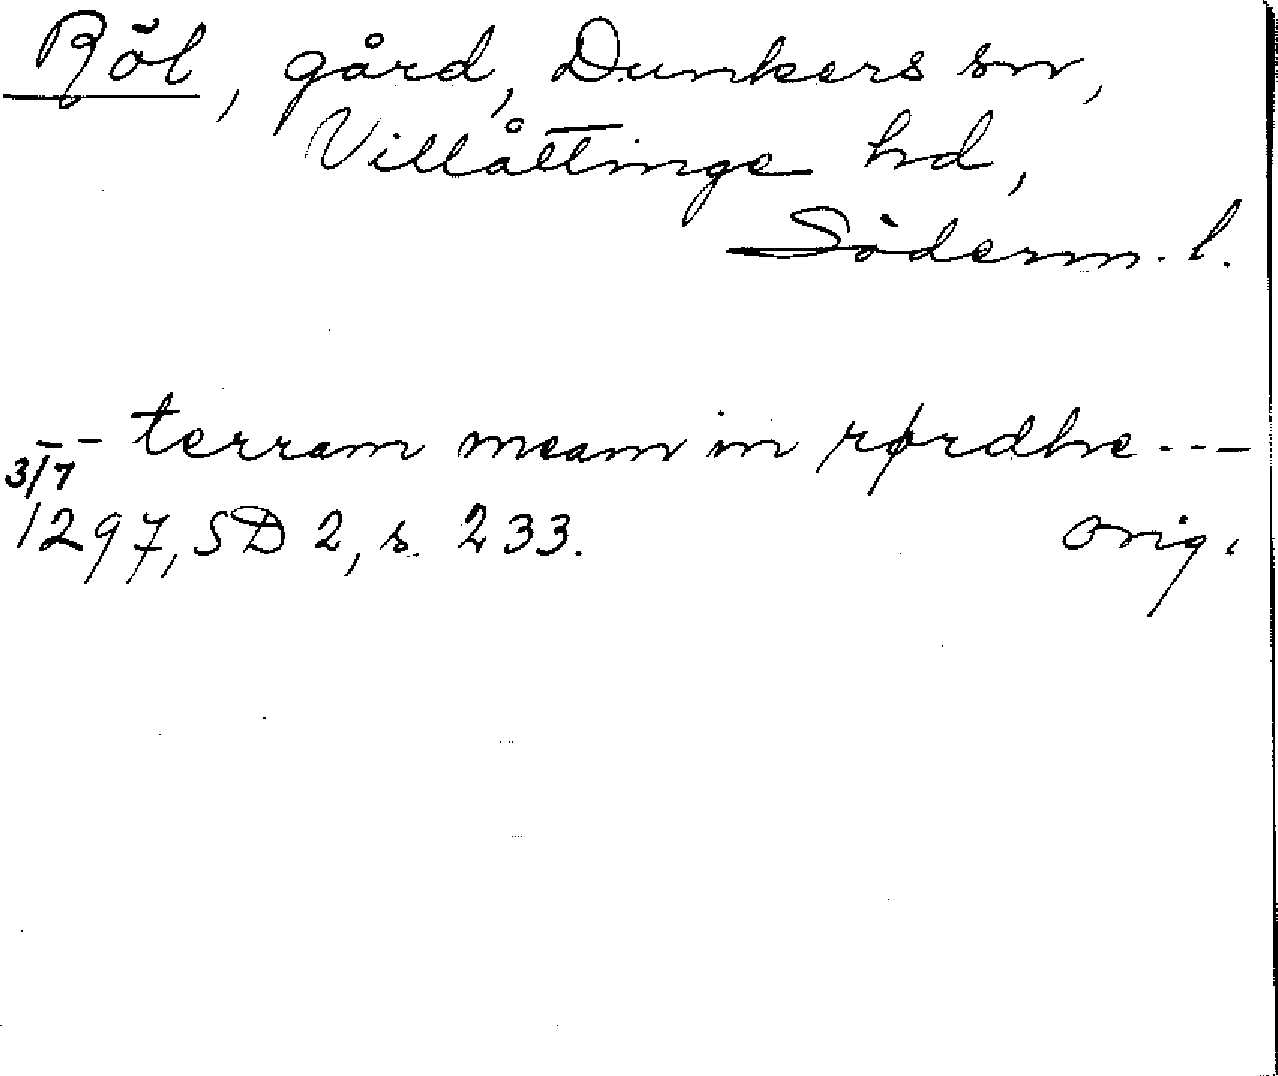 Röl, gård, Dunkers sn,
Villåttinge hd,
Söderm. l.
-- terram meam in rørdhe ---
3/7
1297, SD 2, s. 233. orig.